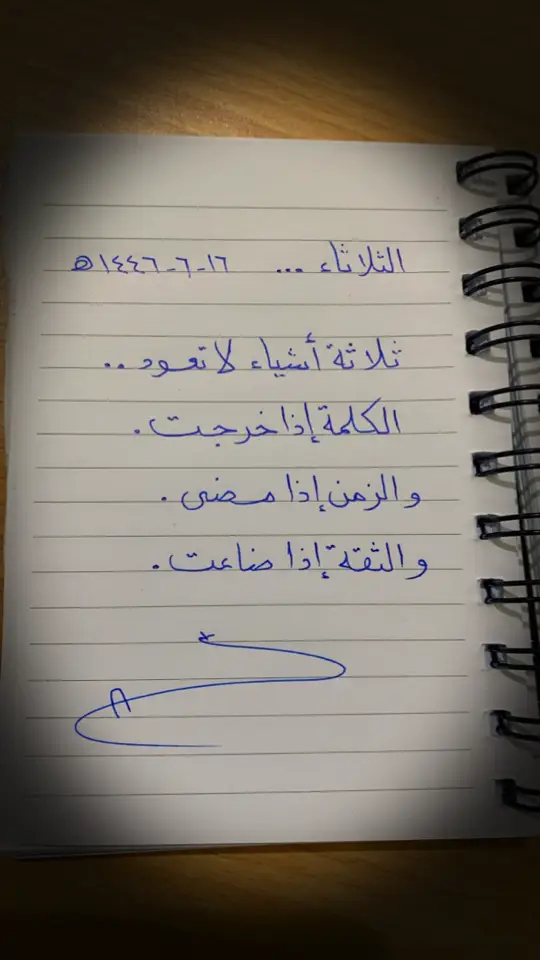 الثلاثاء ... ١٦-٦-١٤٤٦هـ
ثلاثة أشياء لا تعود ..
الكلمة إذا خرجت .
والزمن إذا مضى .
والثقة إذا ضاعت .